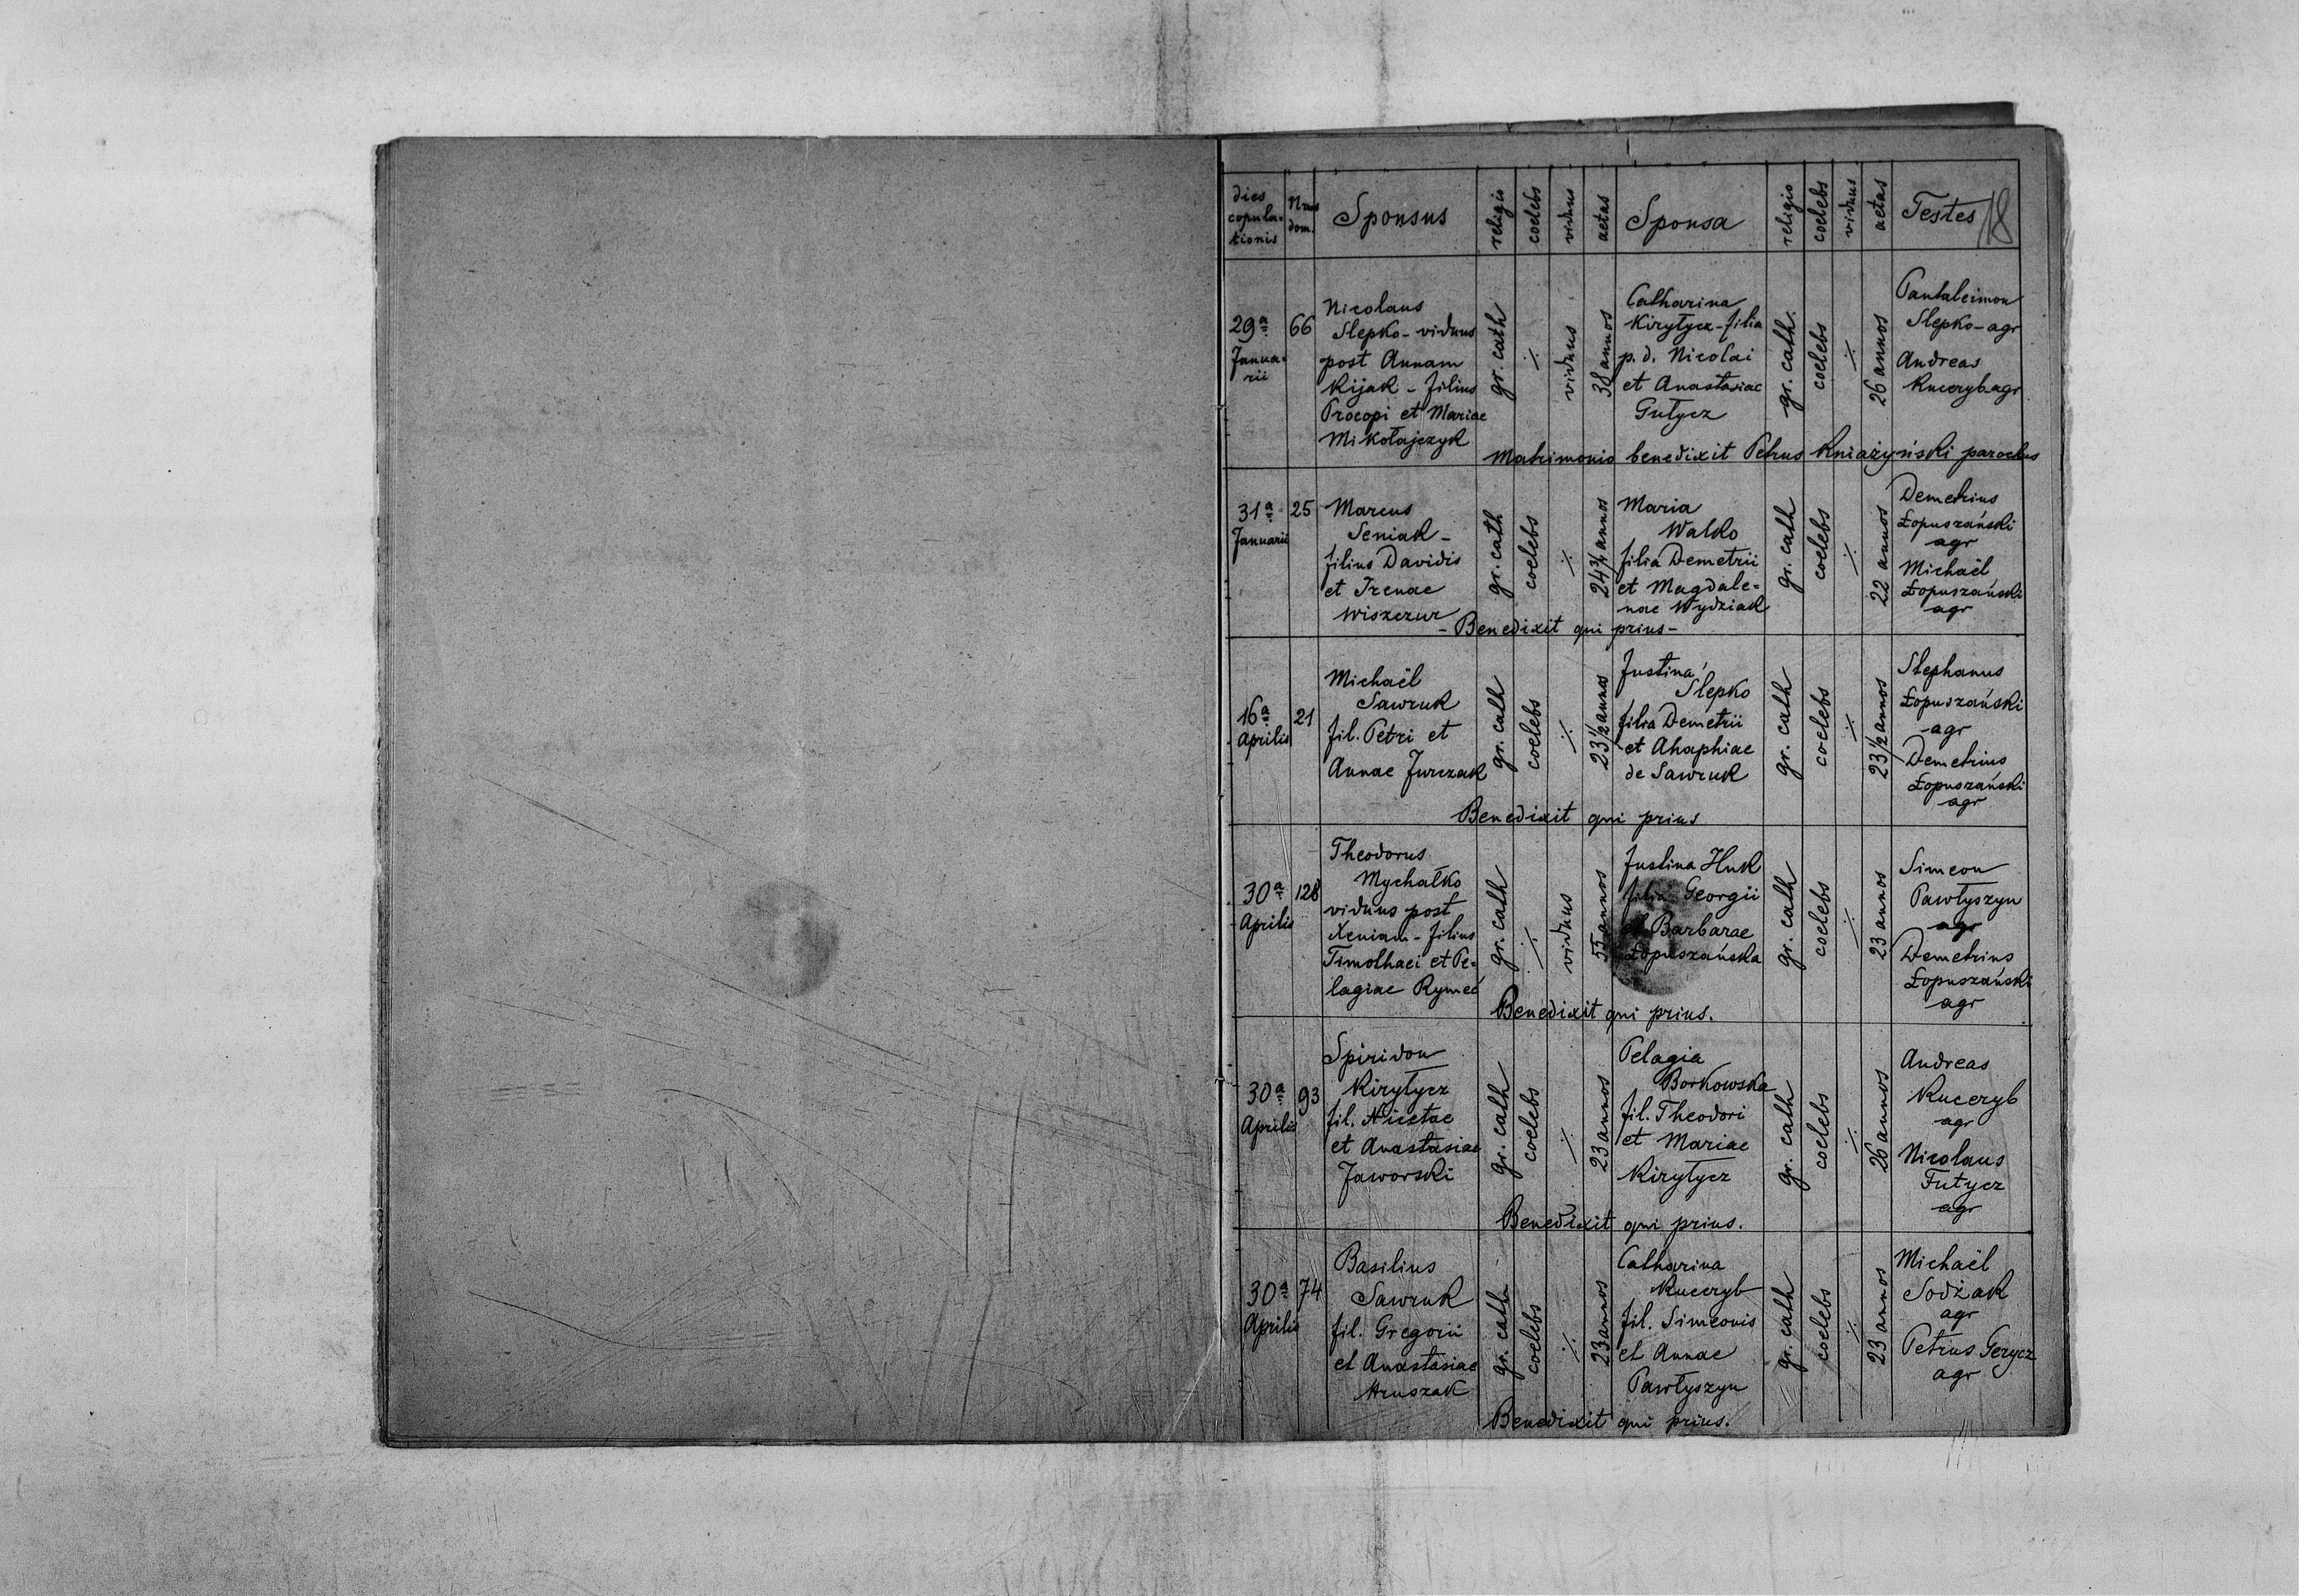 dies
copula-
tionis
Nrus
dom.
Sponsus
religio
coelebs
viduus
aetas
Sponsa
religio
coelebs
viduus
aetas
Testes
18
29ª
Janua-
rii
66
Nicolaus
Slepko - viduus
post Annam
Kijak - filius
Procopi et Mariae
Mikołajczyk
gr. cath
·/·
viduus
38 annos
Catharina
Kiryłycz - filia
p.d. Nicolai
et Anastasiae
Gutycz
gr. cath.
coelebs
·/·
26 annos
Pantaleimon
Slepko - agr
Andreas
Kuceryb agr
Matrimonio benedixit Petrus Kniażyński parochus
31ª
Januarii
25
Marcus
Seniak -
filius Davidis
et Irenae
Wiszczur
gr. cath
coelebs
·/·
24 3/4 annos
Maria
Walko
filia Demetrii
et Magdale-
nae Wydziak
gr. cath
coelebs
·/·
22 annos
Demetrius
Łopuszański
agr
Michaël
Łopuszański
agr
- Benedixit qui prius -
16ª
Aprilis
21
Michaël
Sawruk
fil. Petri et
Annae Jurczak
gr. cath
coelebs
·/·
23 1/2 annos
Justina
Slepko
filia Demetrii
et Ahaphiae
de Sawruk
gr. cath
coelebs
·/·
23 1/2 annos
Stephanus
Łopuszański
agr
Demetrius
Łopuszański
agr
Benedixit qui prius
30ª
Aprilis
128
Theodorus
Mychałko
viduus post
Xeniam - filius
Timothaei et Pe-
lagiae Rymeć
gr. cath
·/·
viduus
55 annos
Justina Huk
filia Georgii
et Barbarae
Łopuszańska
gr. cath
coelebs
·/·
23 annos
Simeon
Pawłyszyn
agr
Demetrius
Łopuszański
agr
Benedixit qui prius.
30ª
Aprilis
93
Spiridon
Kiryłycz
fil. Nicetae
et Anastasiae
Jaworski
gr. cath
coelebs
·/·
23 annos
Pelagia
Borkowska
fil. Theodori
et Mariae
Kiryłycz
gr. cath
coelebs
·/·
26 annos
Andreas
Kuceryb
agr
Nicolaus
Futycz
agr
Benedixit qui prius.
30ª
Aprilis
74
Basilius
Sawruk
fil. Gregorii
et Anastasiae
Hruszak
gr. cath
coelebs
·/·
23 annos
Catharina
Kuceryb
fil. Simeonis
et Annae
Pawłyszyn
gr. cath
coelebs
·/·
23 annos
Michaël
Sodżak
agr
Petrus Gerycz
agr
Benedixit qui prius.